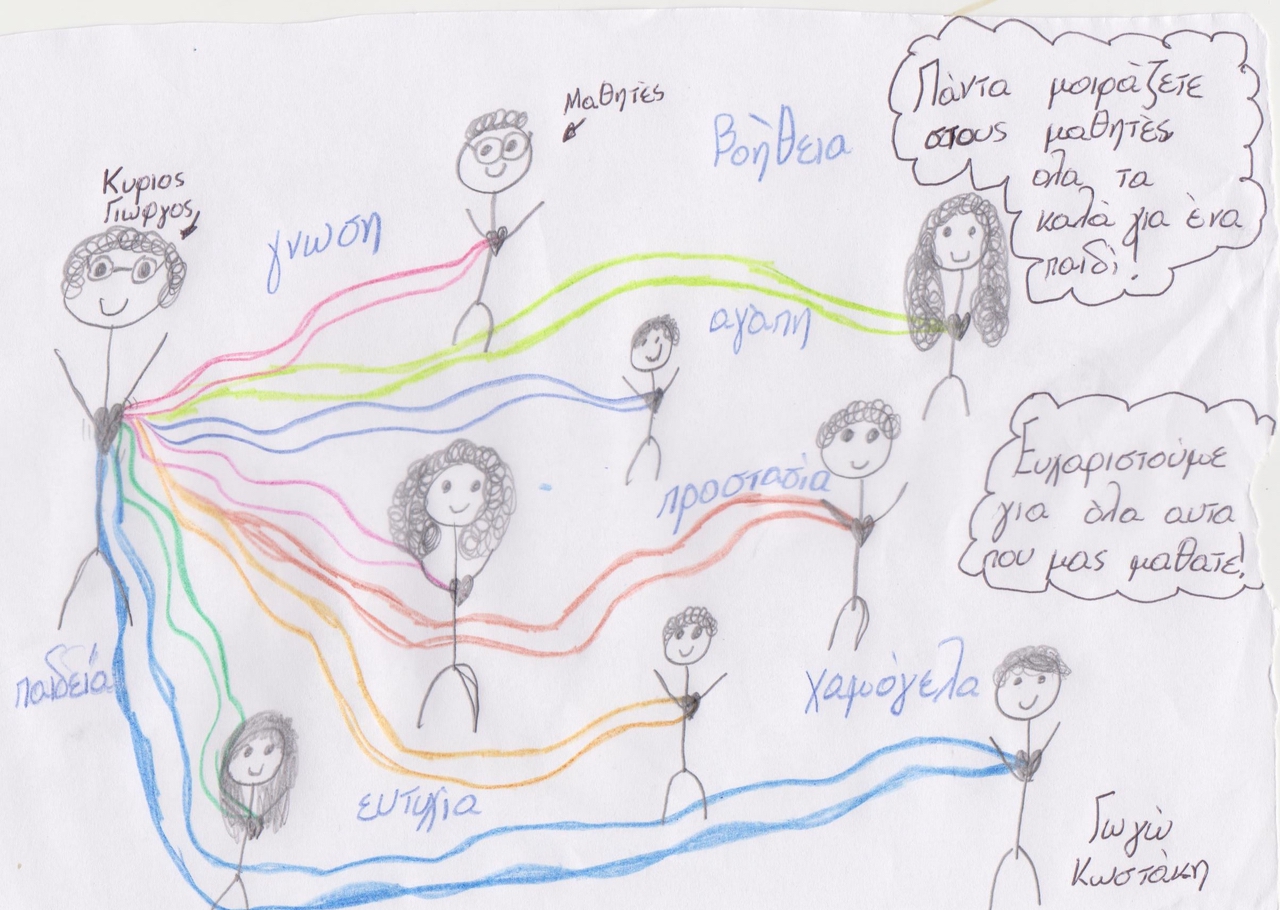 Μαθητές
Κυριος
Γιωργος
γνωση
Βοήθεια
Πάντα μοιράζετε
στους μαθητές
ολα τα
καλά για ένα
παιδί!
αγάπη
προστασία
Ευχαριστούμε
για όλα αυτα
που μας μαθατε!
παιδεία
χαμόγελα
ευτυχία
Γωγώ
Κωστάκη